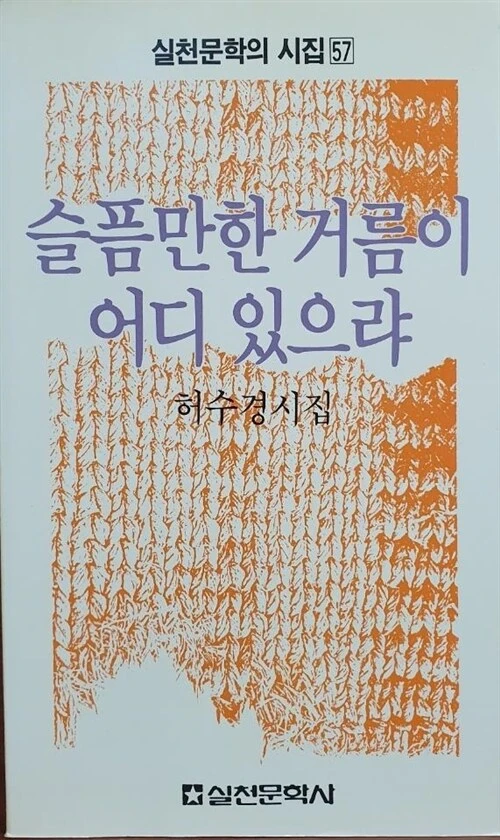 실천문학의 시집 57
슬픔만한 거름이
어디 있으랴
허수경시집
실천문학사